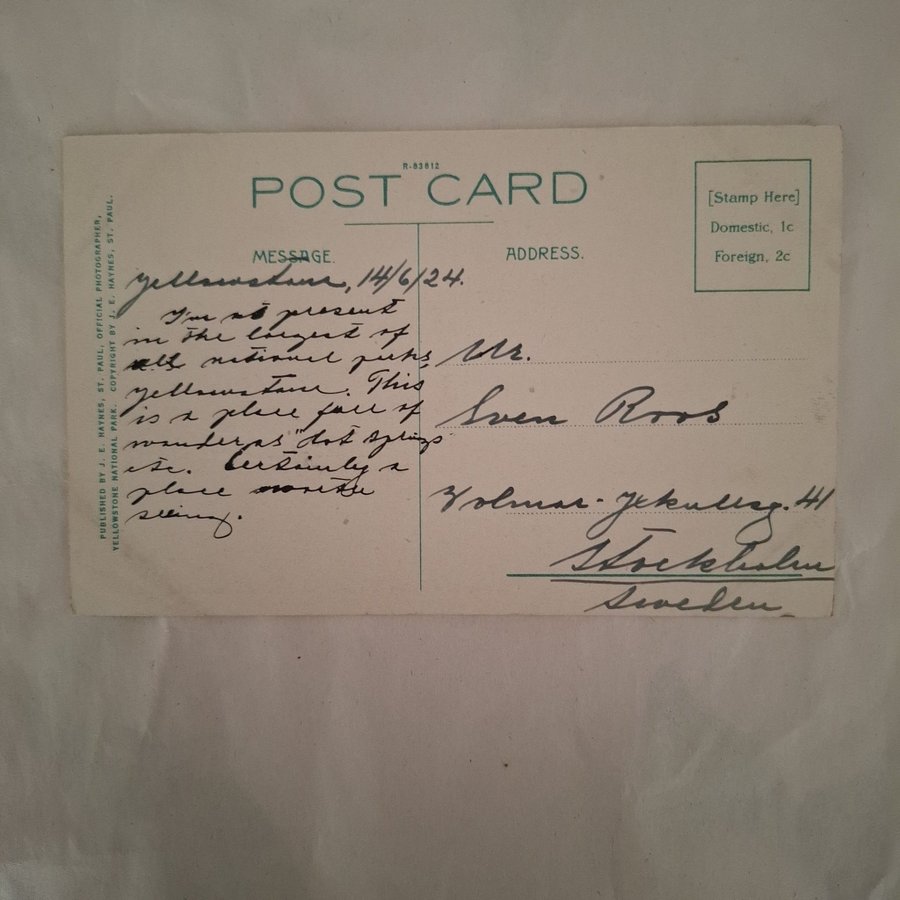 R-83812
POST CARD
[Stamp Here]
Domestic, 1c
Foreign, 2c
MESSAGE.
ADDRESS.
PUBLISHED BY J. E. HAYNES, ST. PAUL, OFFICIAL PHOTOGRAPHER,
YELLOWSTONE NATIONAL PARK. COPYRIGHT BY J. E. HAYNES, ST. PAUL.
Yellowstone, 14/6/24.
I'm at present
in the largest of
all national parks,
Yellowstone. This
is a place full of
wonder as "Hot Springs"
etc. Certainly a
place worth
seeing.
Mr.
Sven Roos
41
Stockholm
Sweden